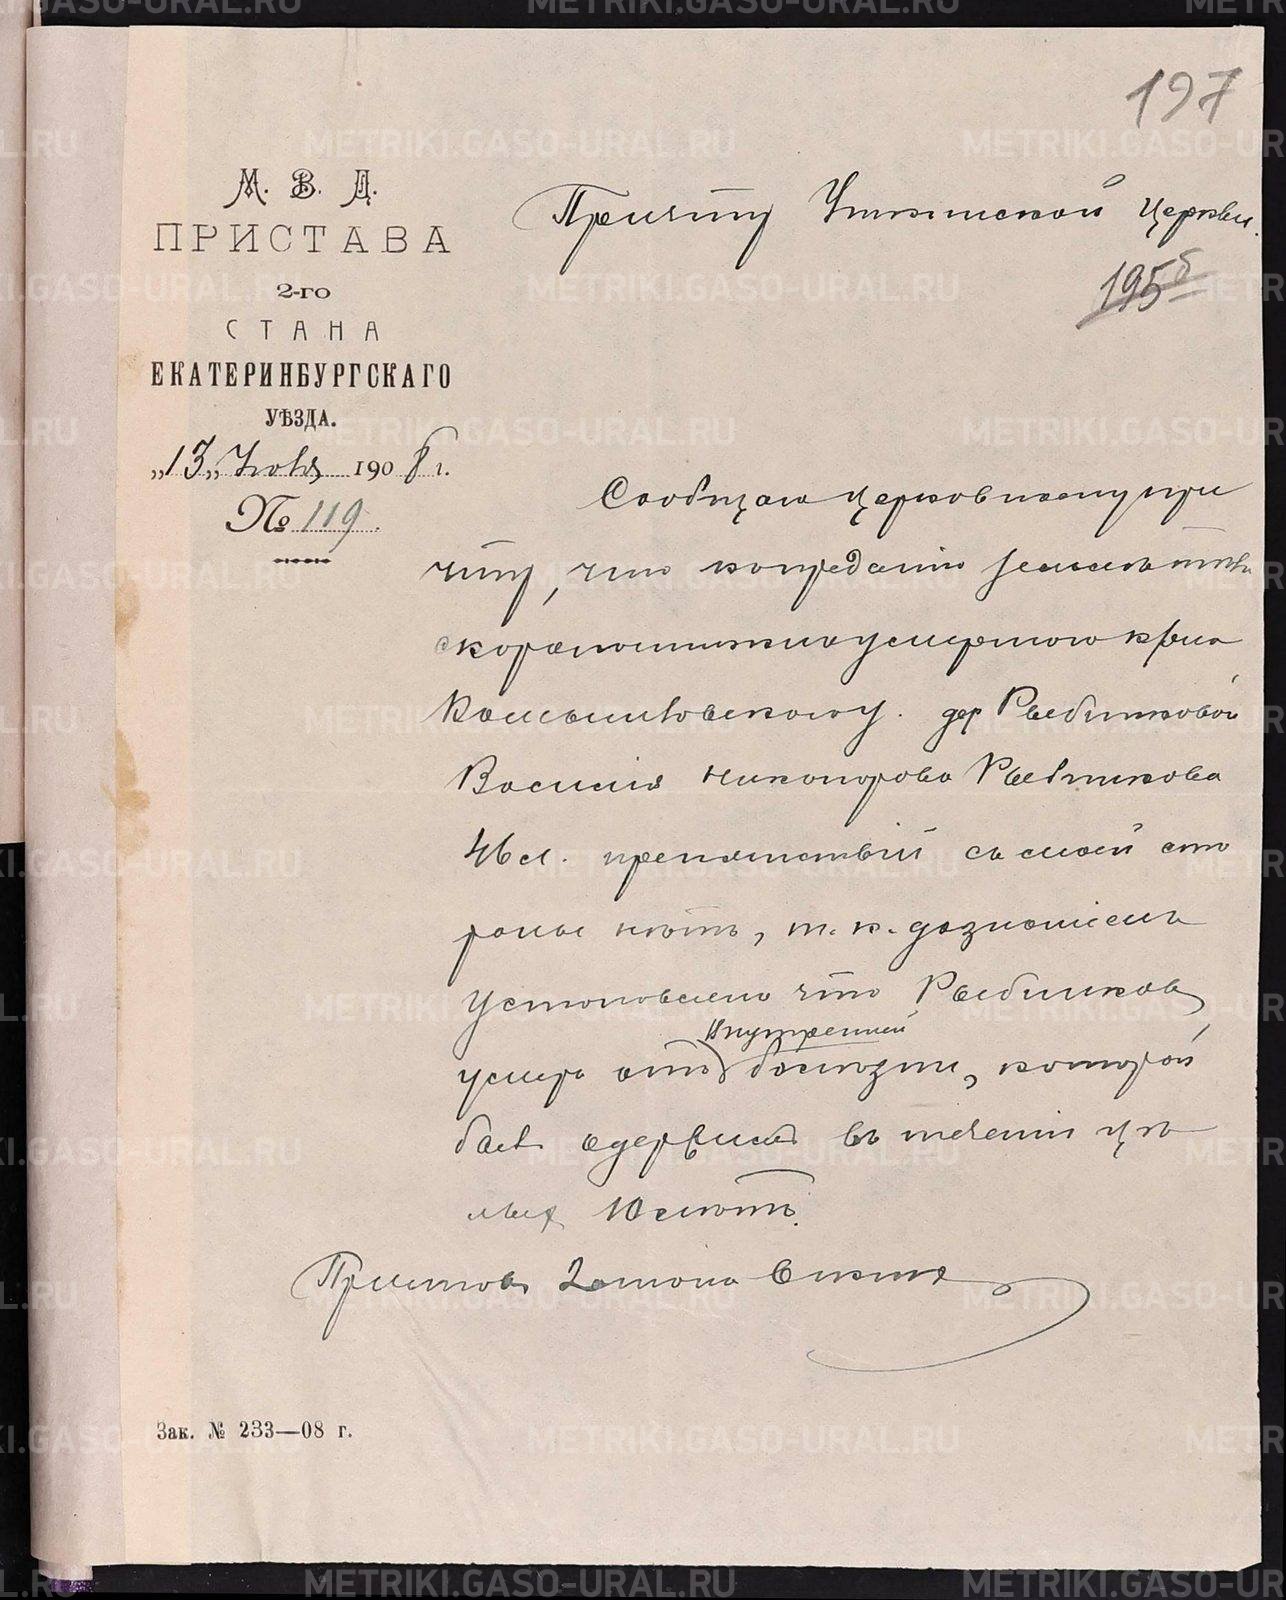 197
М. В. Д.
ПРИСТАВА
2-го
СТАНА
ЕКАТЕРИНБУРГСКАГО
УѢЗДА.
„13„ Іюня 1908 г.
№ 119.
Причту Уткинской Церкви.
195б
Сообщаю церковному при
чту, что к преданію землѣ тѣла
скоропостижно умершого кр-на
Камышловскаго у. дер Рыбниковой
Василія Никонорова Рыбникова
46 л. препятствій съ моей сто
роны нѣтъ, т. к. дознаніемъ
установлено что Рыбников
умеръ отъ внутренней болѣзни, которой
былъ одержимъ въ теченіи цѣ
лых 10 лѣтъ.
Приставъ 2 стана
Зак. № 233—08 г.
METRIKI.GASO-URAL.RU